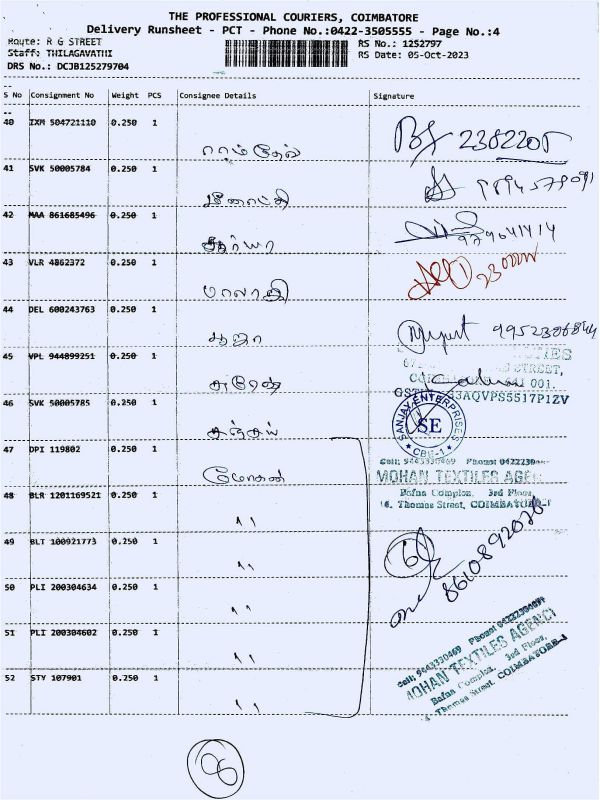 THE PROFESSIONAL COURIERS, COIMBATORE
Delivery Runsheet - PCT - Phone No.:0422-3505555 - Page No.:4
Route: R G STREET
RS No.: 1252797
Staff: THILAGAVATHI
RS Date: 05-Oct-2023
DRS No.: DCJB125279704
S No Consignment No Weight PCS Consignee Details Signature
40 IXM 504721110 0.250 1
ராம்தேவ்
41 SVK 50005784 0.250 1
மீனாட்சி
42 MAA 861685496 0.250 1
சூர்யா
43 VLR 4862372 0.250 1
பாலாஜி
44 DEL 600243763 0.250 1
45 VPL 944899251 0.250 1
சுரேஷ்
STREET,
001.
46 SVK 50005785 0.250 1
33AQVPS5517P1ZV
சஞ்சய்
SANJAY ENTERPRISES
SE
CBE-1
47 DPI 119802 0.250 1
மோகன்
Cell: 9443330469 Phone: 0422230
MOHAN TEXTILES AGEN
Bafna Complex, 3rd Floor,
Thomas Street, COIMBATORE-1
48 BLR 1201169521 0.250 1
"
49 BLT 100921773 0.250 1
"
6
8610892076
50 PLI 200304634 0.250 1
"
51 PLI 200304602 0.250 1
"
52 STY 107901 0.250 1
"
Cell: 9443330469 Phone:
MOHAN TEXTILES AGENCI
Bafna Complex, 3rd Floor,
Thomas Street, COIMBATORE-1